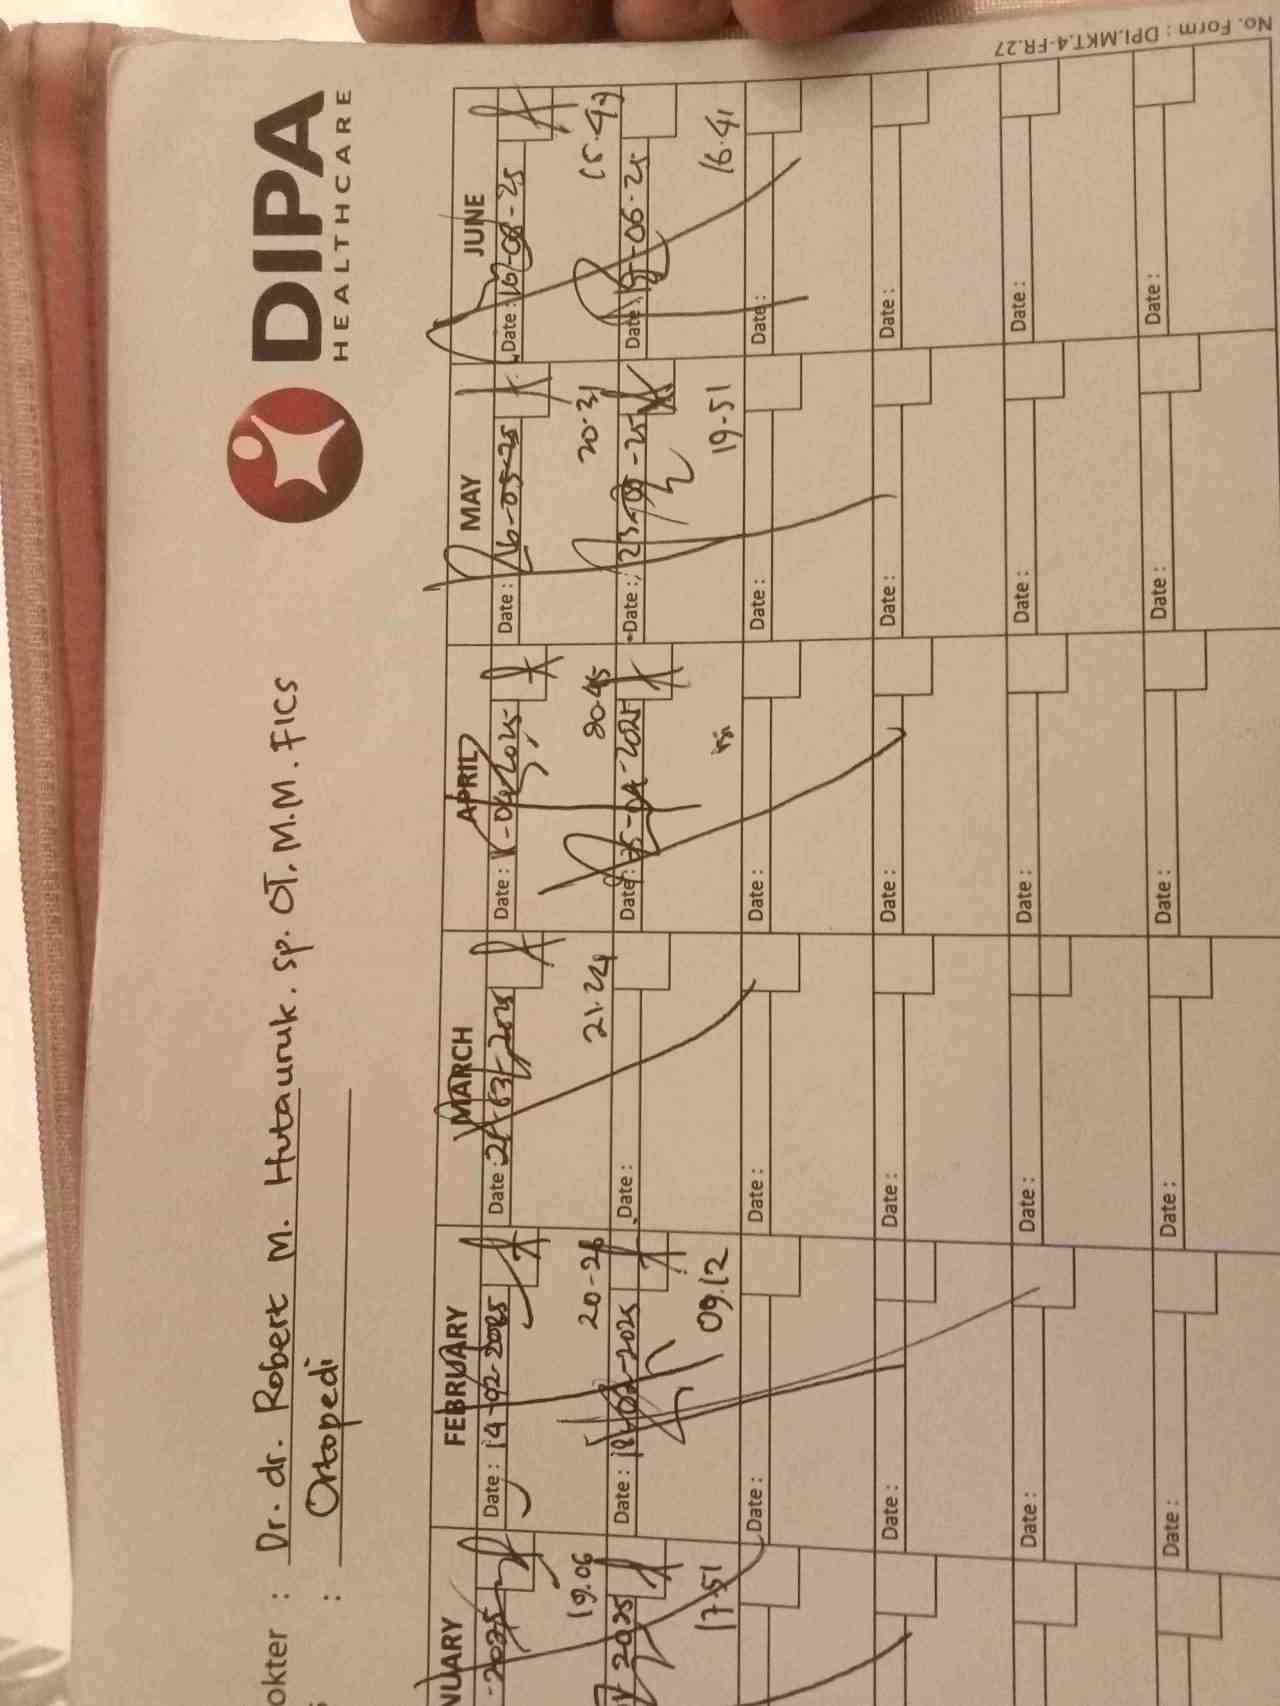 DIPA
HEALTHCARE
okter : Dr. dr. Robert M. Hutauruk. Sp. OT. M.M. FICS
: Ortopedi
NUARY FEBRUARY MARCH APRIL MAY JUNE
-2025 Date : 14-02-2025 Date : 21-03-2025 Date : -04-2025 Date : 16-05-25 Date : 16-06-25
19.06 20-26 21.24 20.45 20-31 15.49
2025 Date : 18-02-2025 Date : Date : 25-04-2025 Date : 23-05-25 Date : -06-25
17.51 09.12 19-51 16.41
Date : Date : Date : Date : Date :
Date : Date : Date : Date : Date :
Date : Date : Date : Date : Date :
Date : Date : Date : Date : Date :
No. Form : DPI.MKT.4-FR.27